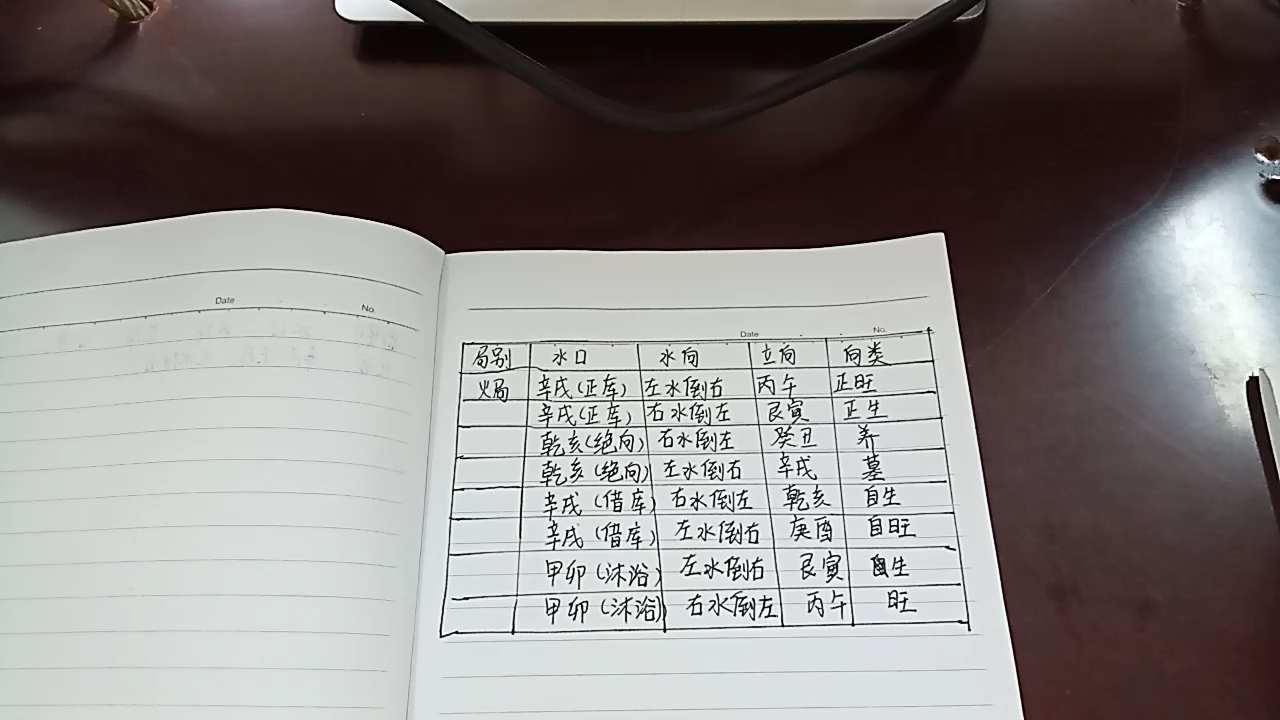 Date
No.
Date
No.
局别 水口 水向 立向 向类
火局 辛戌(正库) 左水倒右 丙午 正旺
辛戌(正库) 右水倒左 艮寅 正生
乾亥(绝向) 右水倒左 癸丑 养
乾亥(绝向) 左水倒右 辛戌 墓
辛戌(借库) 右水倒左 乾亥 自生
辛戌(借库) 左水倒右 庚酉 自旺
甲卯(沐浴) 左水倒右 艮寅 生
甲卯(沐浴) 右水倒左 丙午 旺